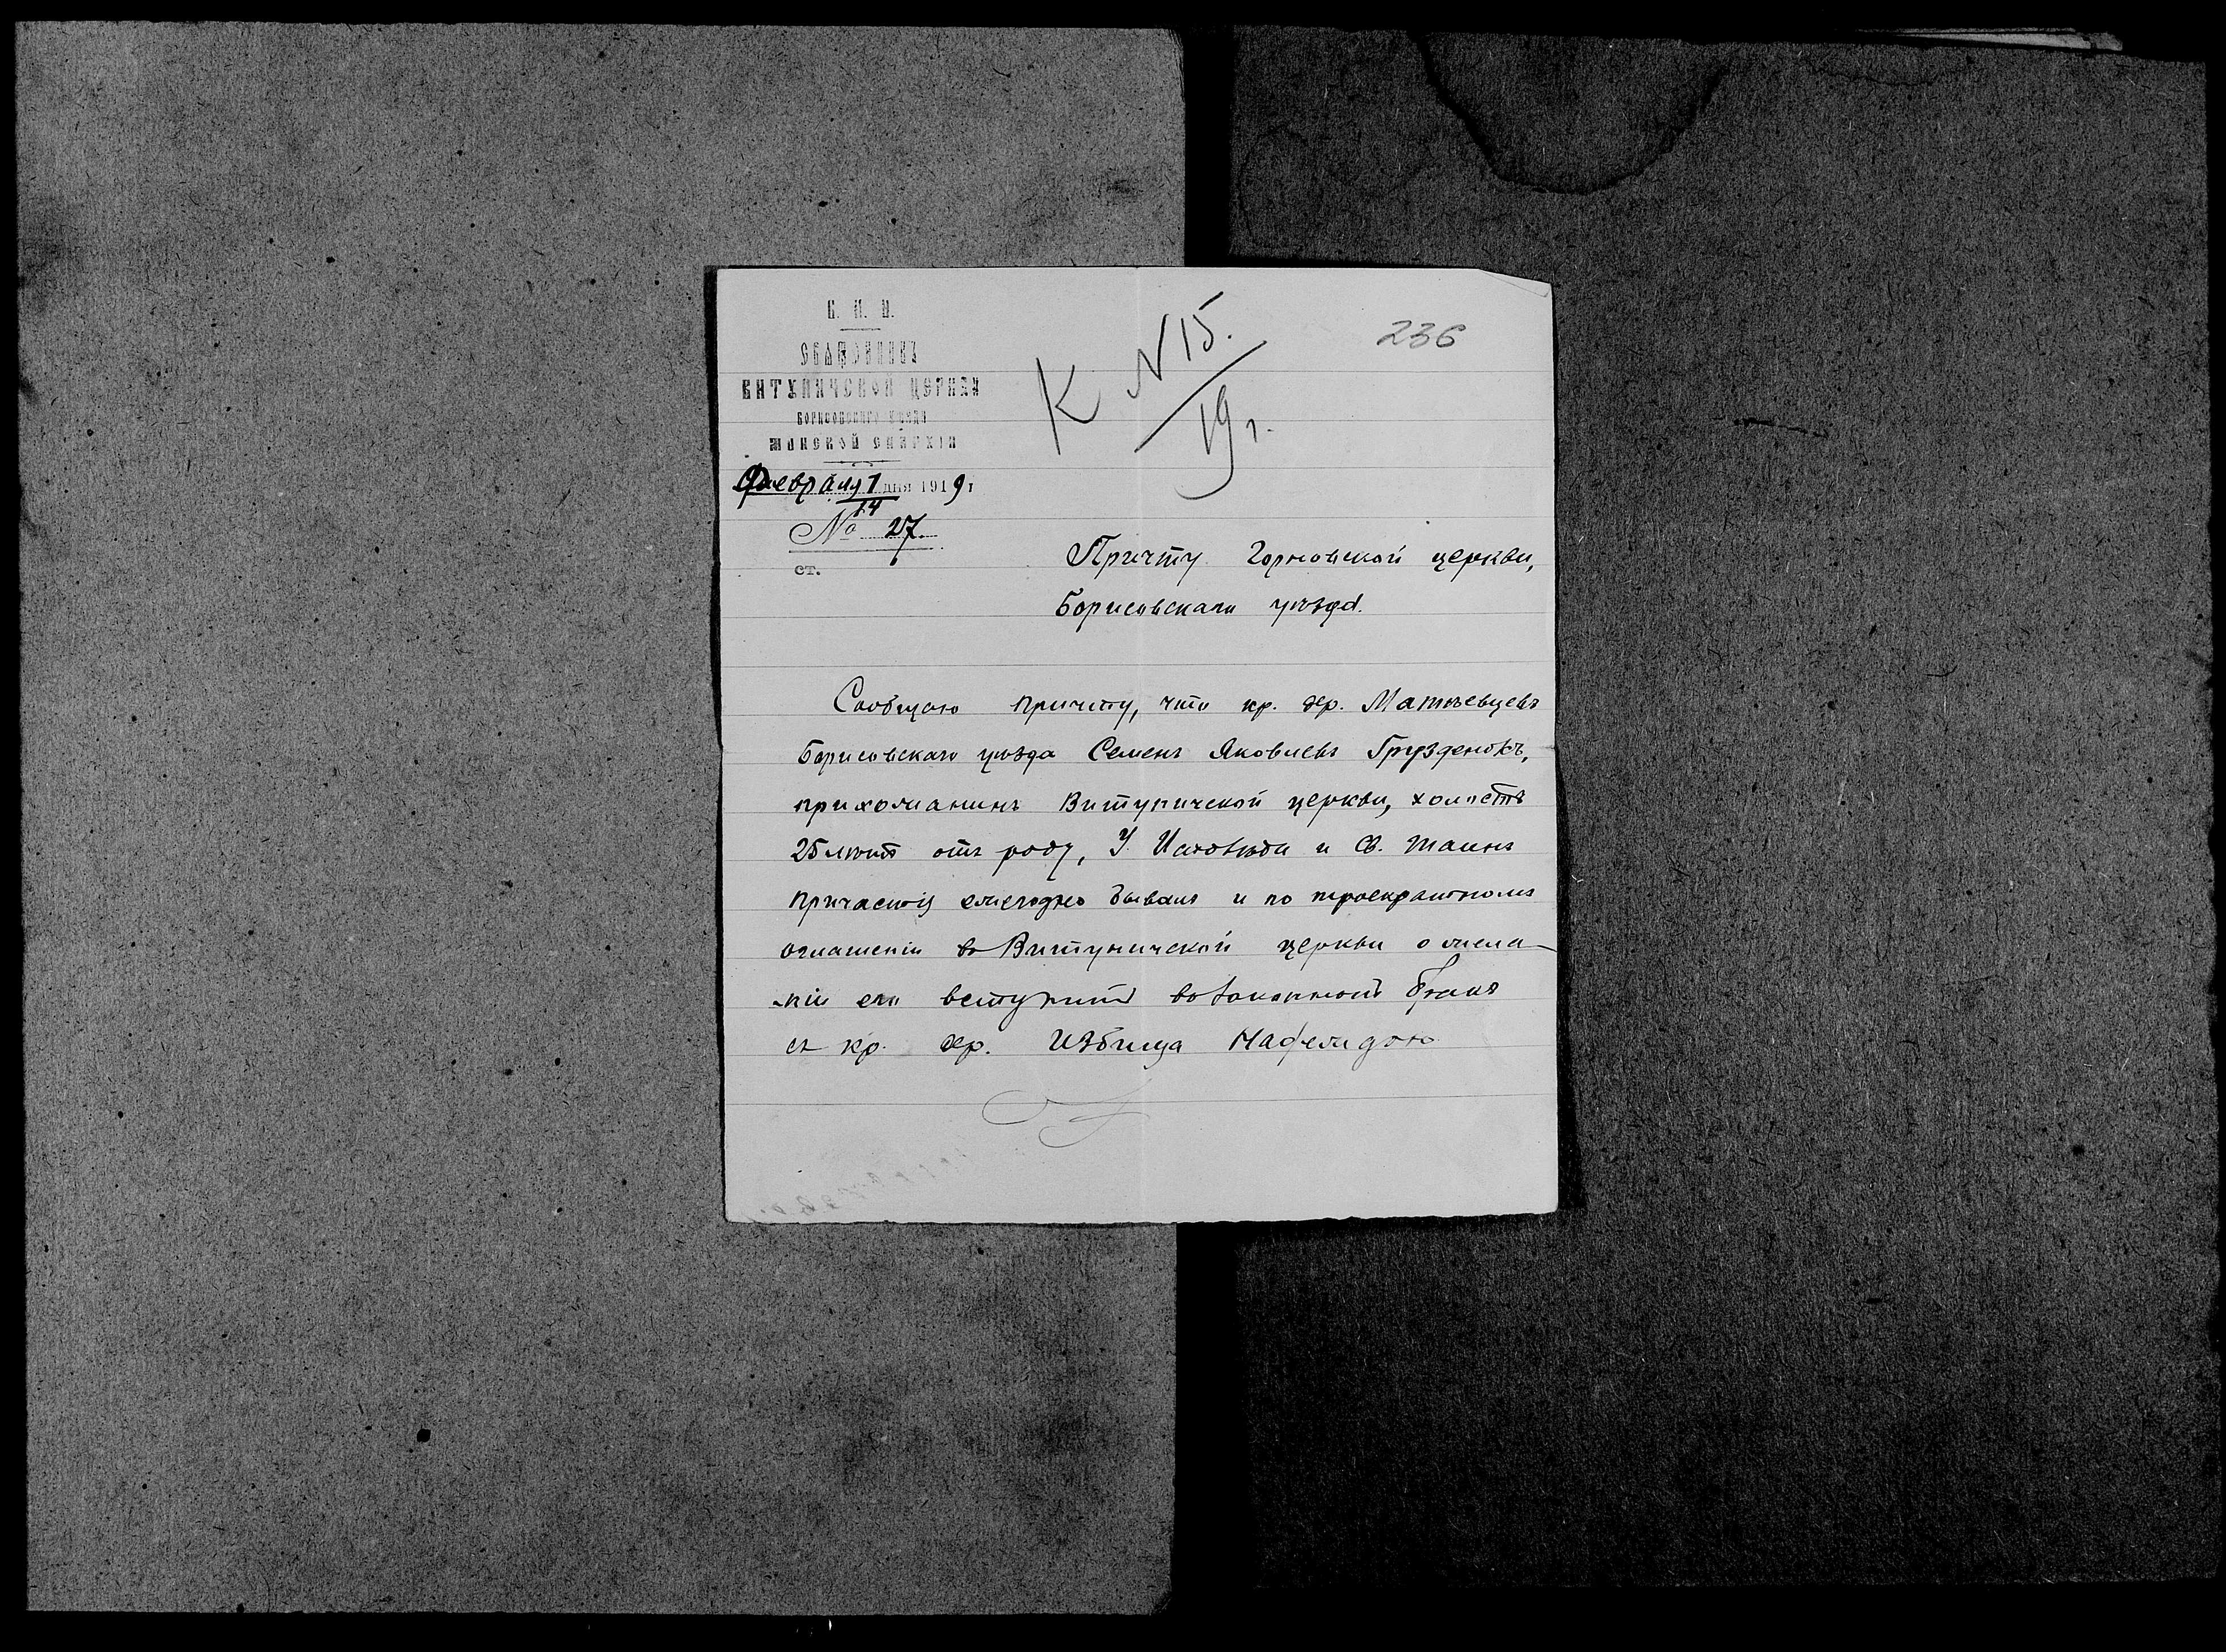 В. П. И.
СВЯЩЕННИКЪ
ВИТУНИЧСКОЙ ЦЕРКВИ
Борисовскаго уѣзда
МИНСКОЙ ЕПАРХІИ
Февраля 1/14 дня 1919 г
№ 27.
ст.
К N 15.
19 г.
236
Причту Горновской церкви,
Борисовскаго уѣзда.
Сообщаю причту, что кр. дер. Матвѣевцевъ
Борисовскаго уѣзда Семенъ Яковлевъ Грузденокъ,
прихожанинъ Витуничской церкви, холостъ
25 лѣтъ отъ роду, У Исповѣди и Св. Таинъ
Причастія ежегодно бывалъ и по троекратномъ
оглашеніи въ Витуничской церкви о жела-
-ніи его вступить въ законный бракъ
съ кр. дер. Избища